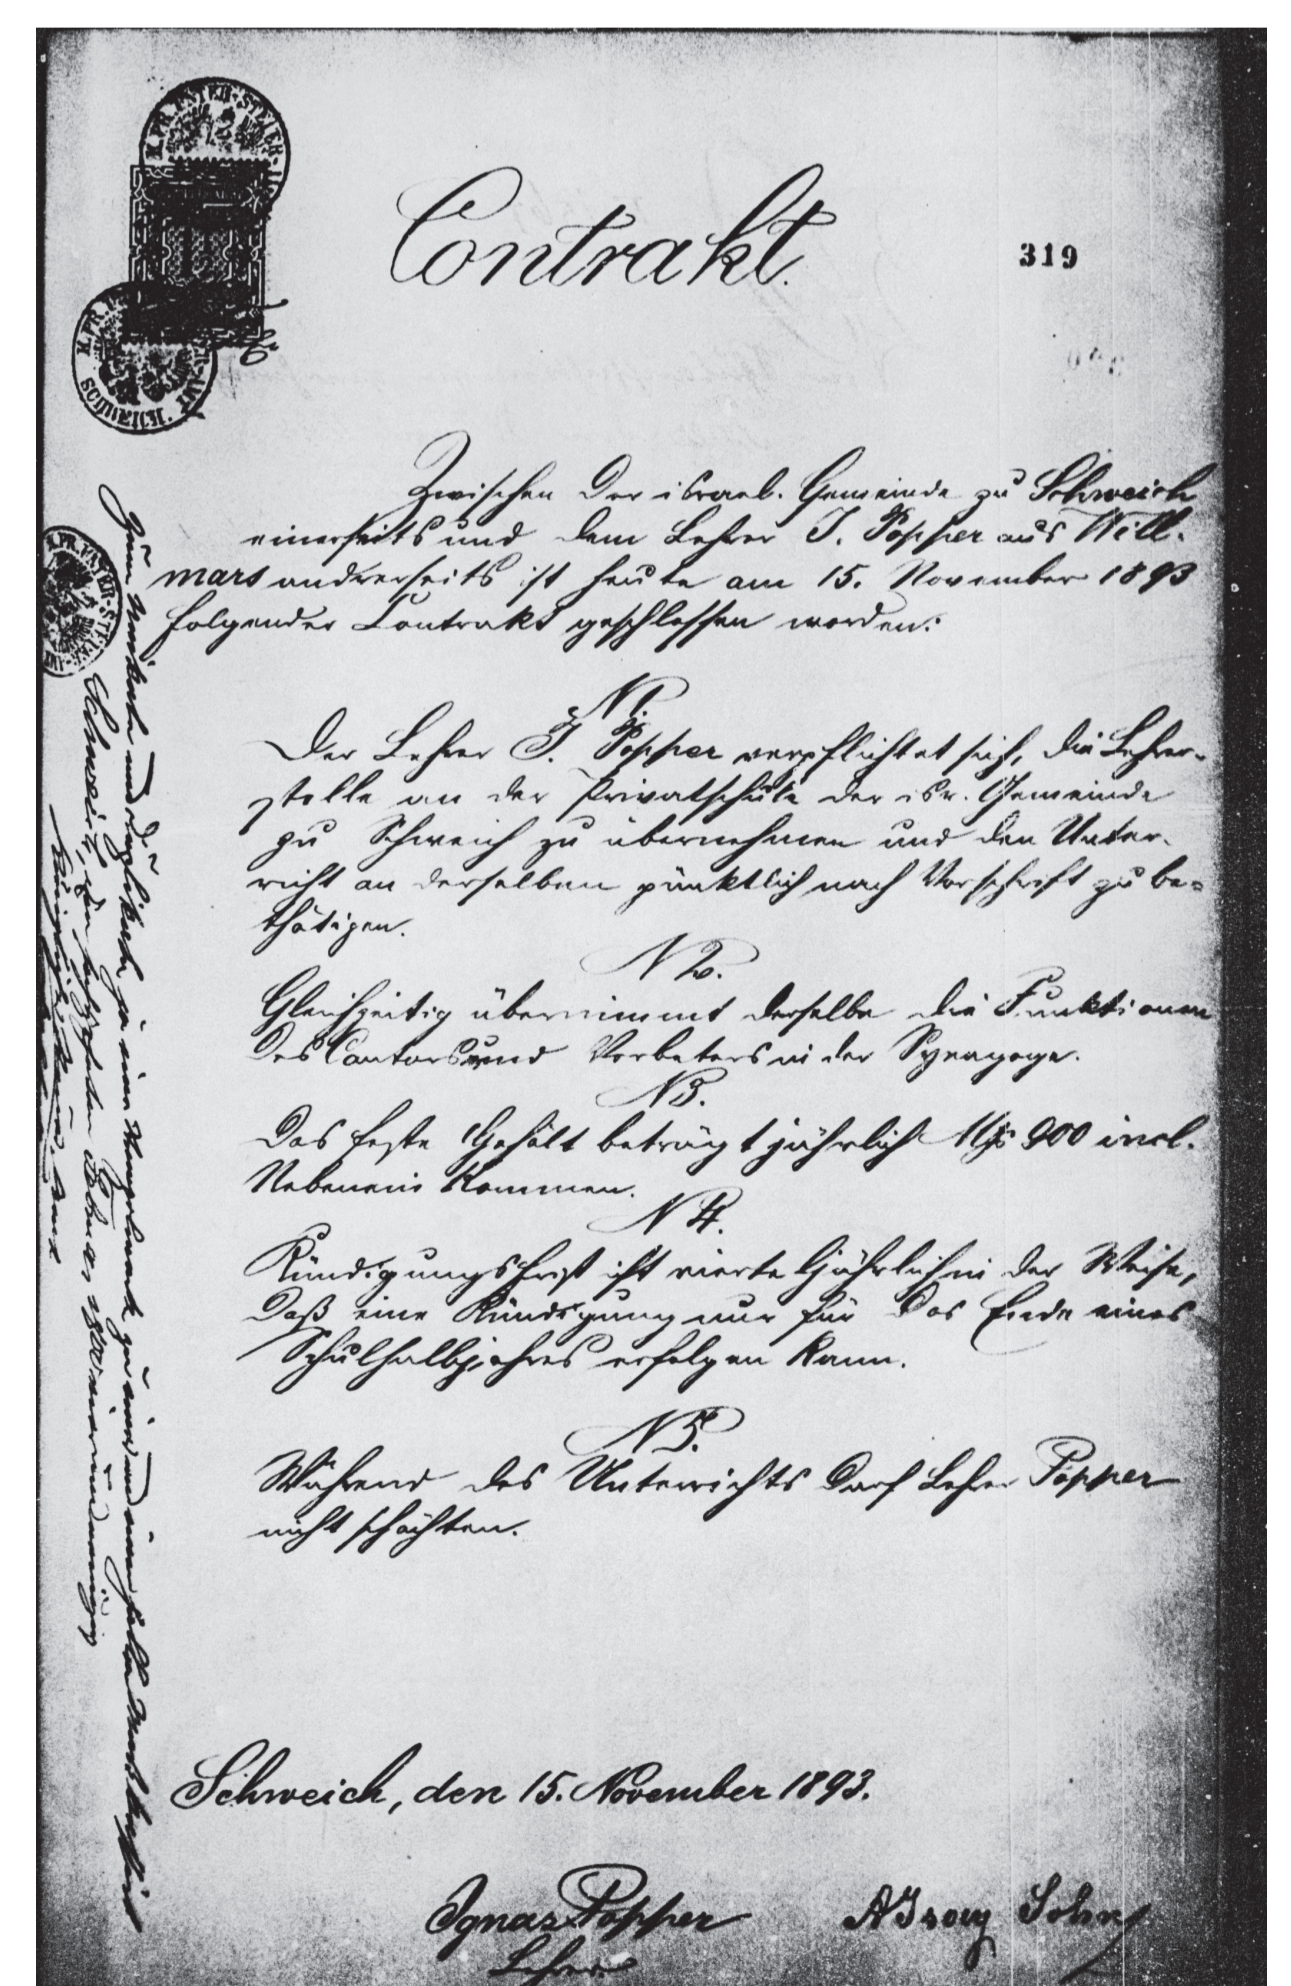 Contrakt.
319
Zwischen der israel. Gemeinde zu Schweich
einerseits und dem Lehrer I. Popper aus Will-
mars andrerseits ist heute am 15. November 1893
folgender Contrakt geschlossen worden:
N 1.
Der Lehrer I. Popper verpflichtet sich, die Lehrer-
stelle an der Privatschule der isr. Gemeinde
zu Schweich zu übernehmen und den Unter-
richt an derselben pünktlich nach Vorschrift zu be-
thätigen.
N 2.
Gleichzeitig übernimmt derselbe die Funktionen
des Cantors und Vorbeters in der Synagoge.
N 3.
Das feste Gehalt beträgt jährlich Mk 900 incl.
Nebeneinkommen.
N 4.
Kündigungsfrist ist vierteljährlich in der Weise,
daß eine Kündigung nur für das Ende eines
Schulhalbjahres erfolgen kann.
N 5.
Während des Unterrichts darf Lehrer Popper
nicht schächten.
Schweich, den 15. November 1893.
Ignaz Popper
Lehrer
Sohn
SCHWEICH.
Schweich, den